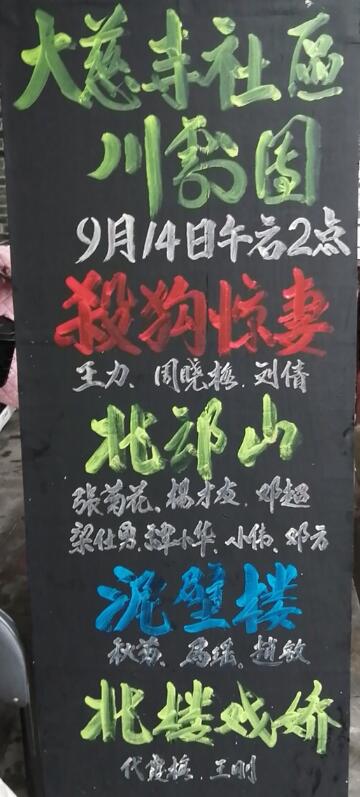 大慈寺社區
川剧团
9月14日午后2点
殺狗惊妻
王力、周晓梅、刘倩
北邙山
张菊花、杨才友、邓超
梁仕勇、谭小华、小伟、邓方
泥壁楼
秋萍、马瑶、趙敏
北楼戏娇
代霞梅、王刚